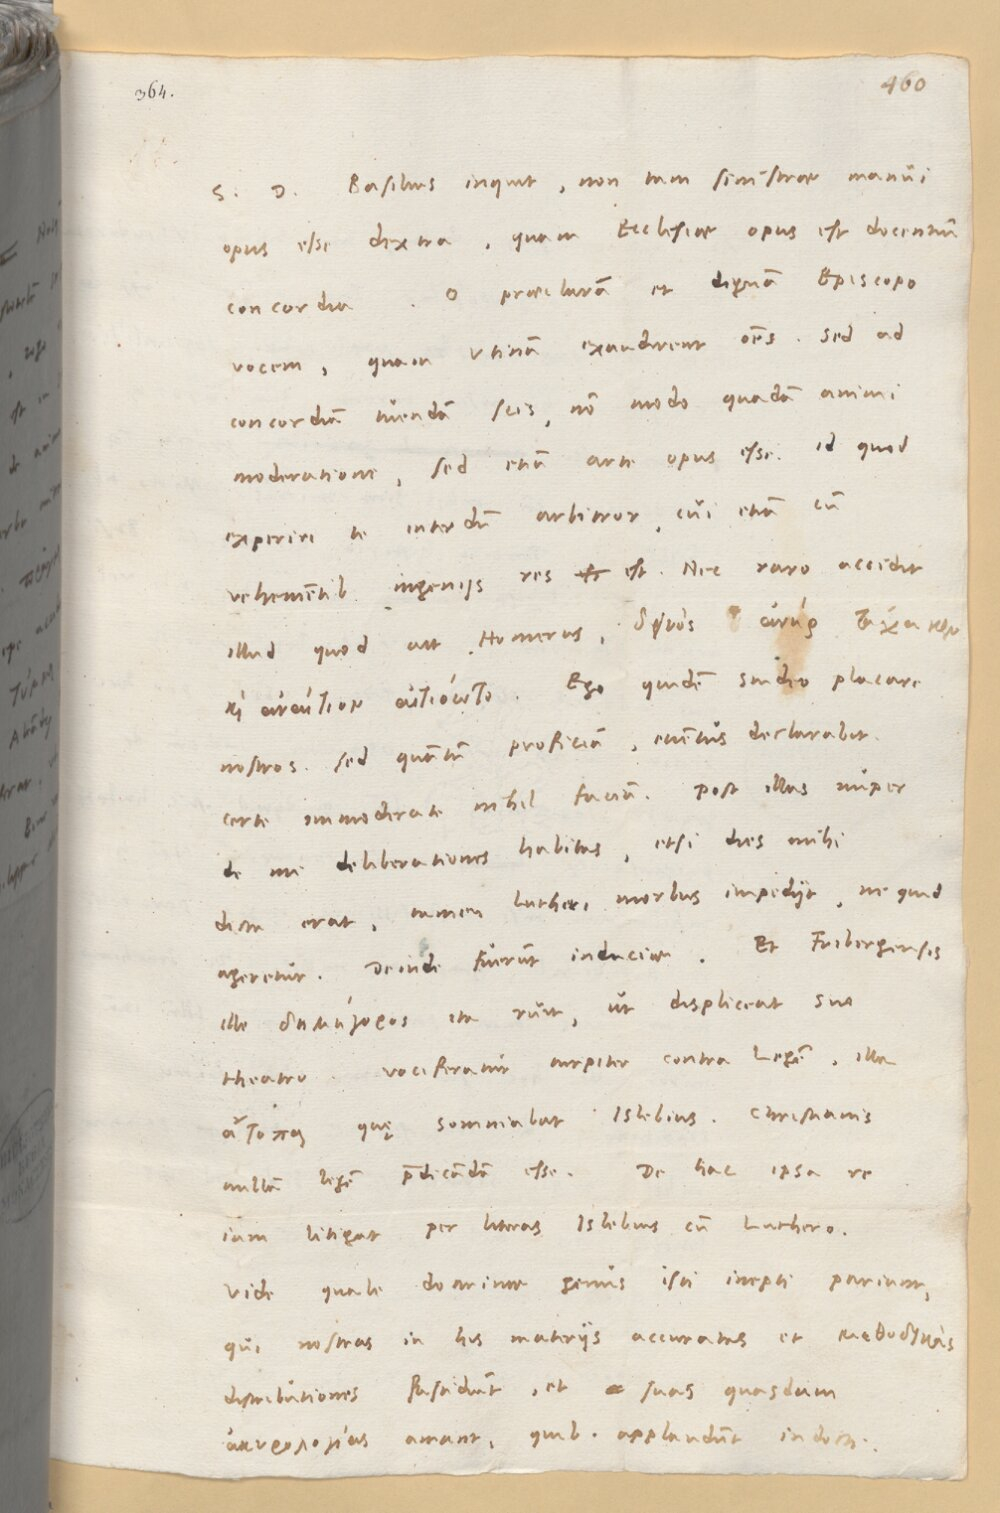 364.
460
S. D. Basilius inquit, non tam sinistrae manui
opus esse dextra, quam Ecclesiae opus est docentiū
concordia. O praeclarā et dignā Episcopo
vocem, quam vtinā exaudirent oēs. Sed ad
concordiā tuendā scis, nō modo quadā animi
moderatione, sed etiā arte opus esse. id quod
experiri te interdū arbitror, cui etiā cū
vehemētib. ingenijs res est. Nec raro accidit
illud quod ait Homerus, δεινὸς ἀνὴρ τάχα κεν
καὶ ἀναίτιον αἰτιόωτο. Ego quidē studeo placare
nostros. sed quātū proficiā, euētus declarabit.
certe immoderate nihil faciā. Post illas nuper
de me deliberationes habitas, etsi dies mihi
dicta erat, tamen Lutheri morbus impedijt, ne quid
ageretur. Deinde fuerūt induciae. Et Fribergensis
ille δημήγορος ita ruit, ut displiceat suo
theatro. vociferatur turpiter contra Legē, illa
ἄτοπα quę somniabat Islebius. Christianis
nullā legē p̄dicādā esse. De hac ipsa re
iam litigat per literas Islebius cū Luthero.
Vide quale doctrinae genus isti inepti pariunt,
qui nostras in his materijs accuratas et μεθοδικὰς
distributiones fastidiūt, et suas quasdam
ἀκυρολογίας amant, quib. applaudūt indocti.